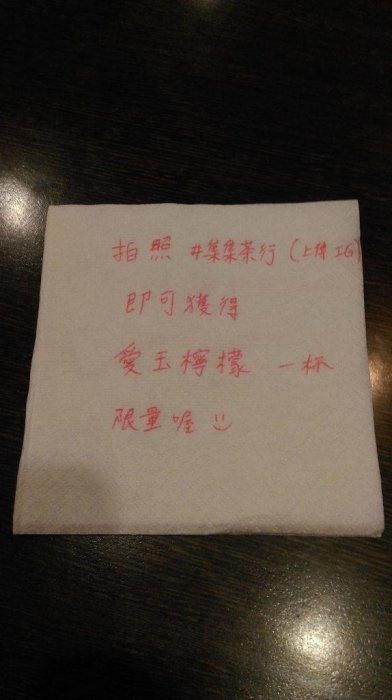 拍照 #集集茶行 (上傳IG)
即可獲得
愛玉檸檬 一杯
限量喔 :)